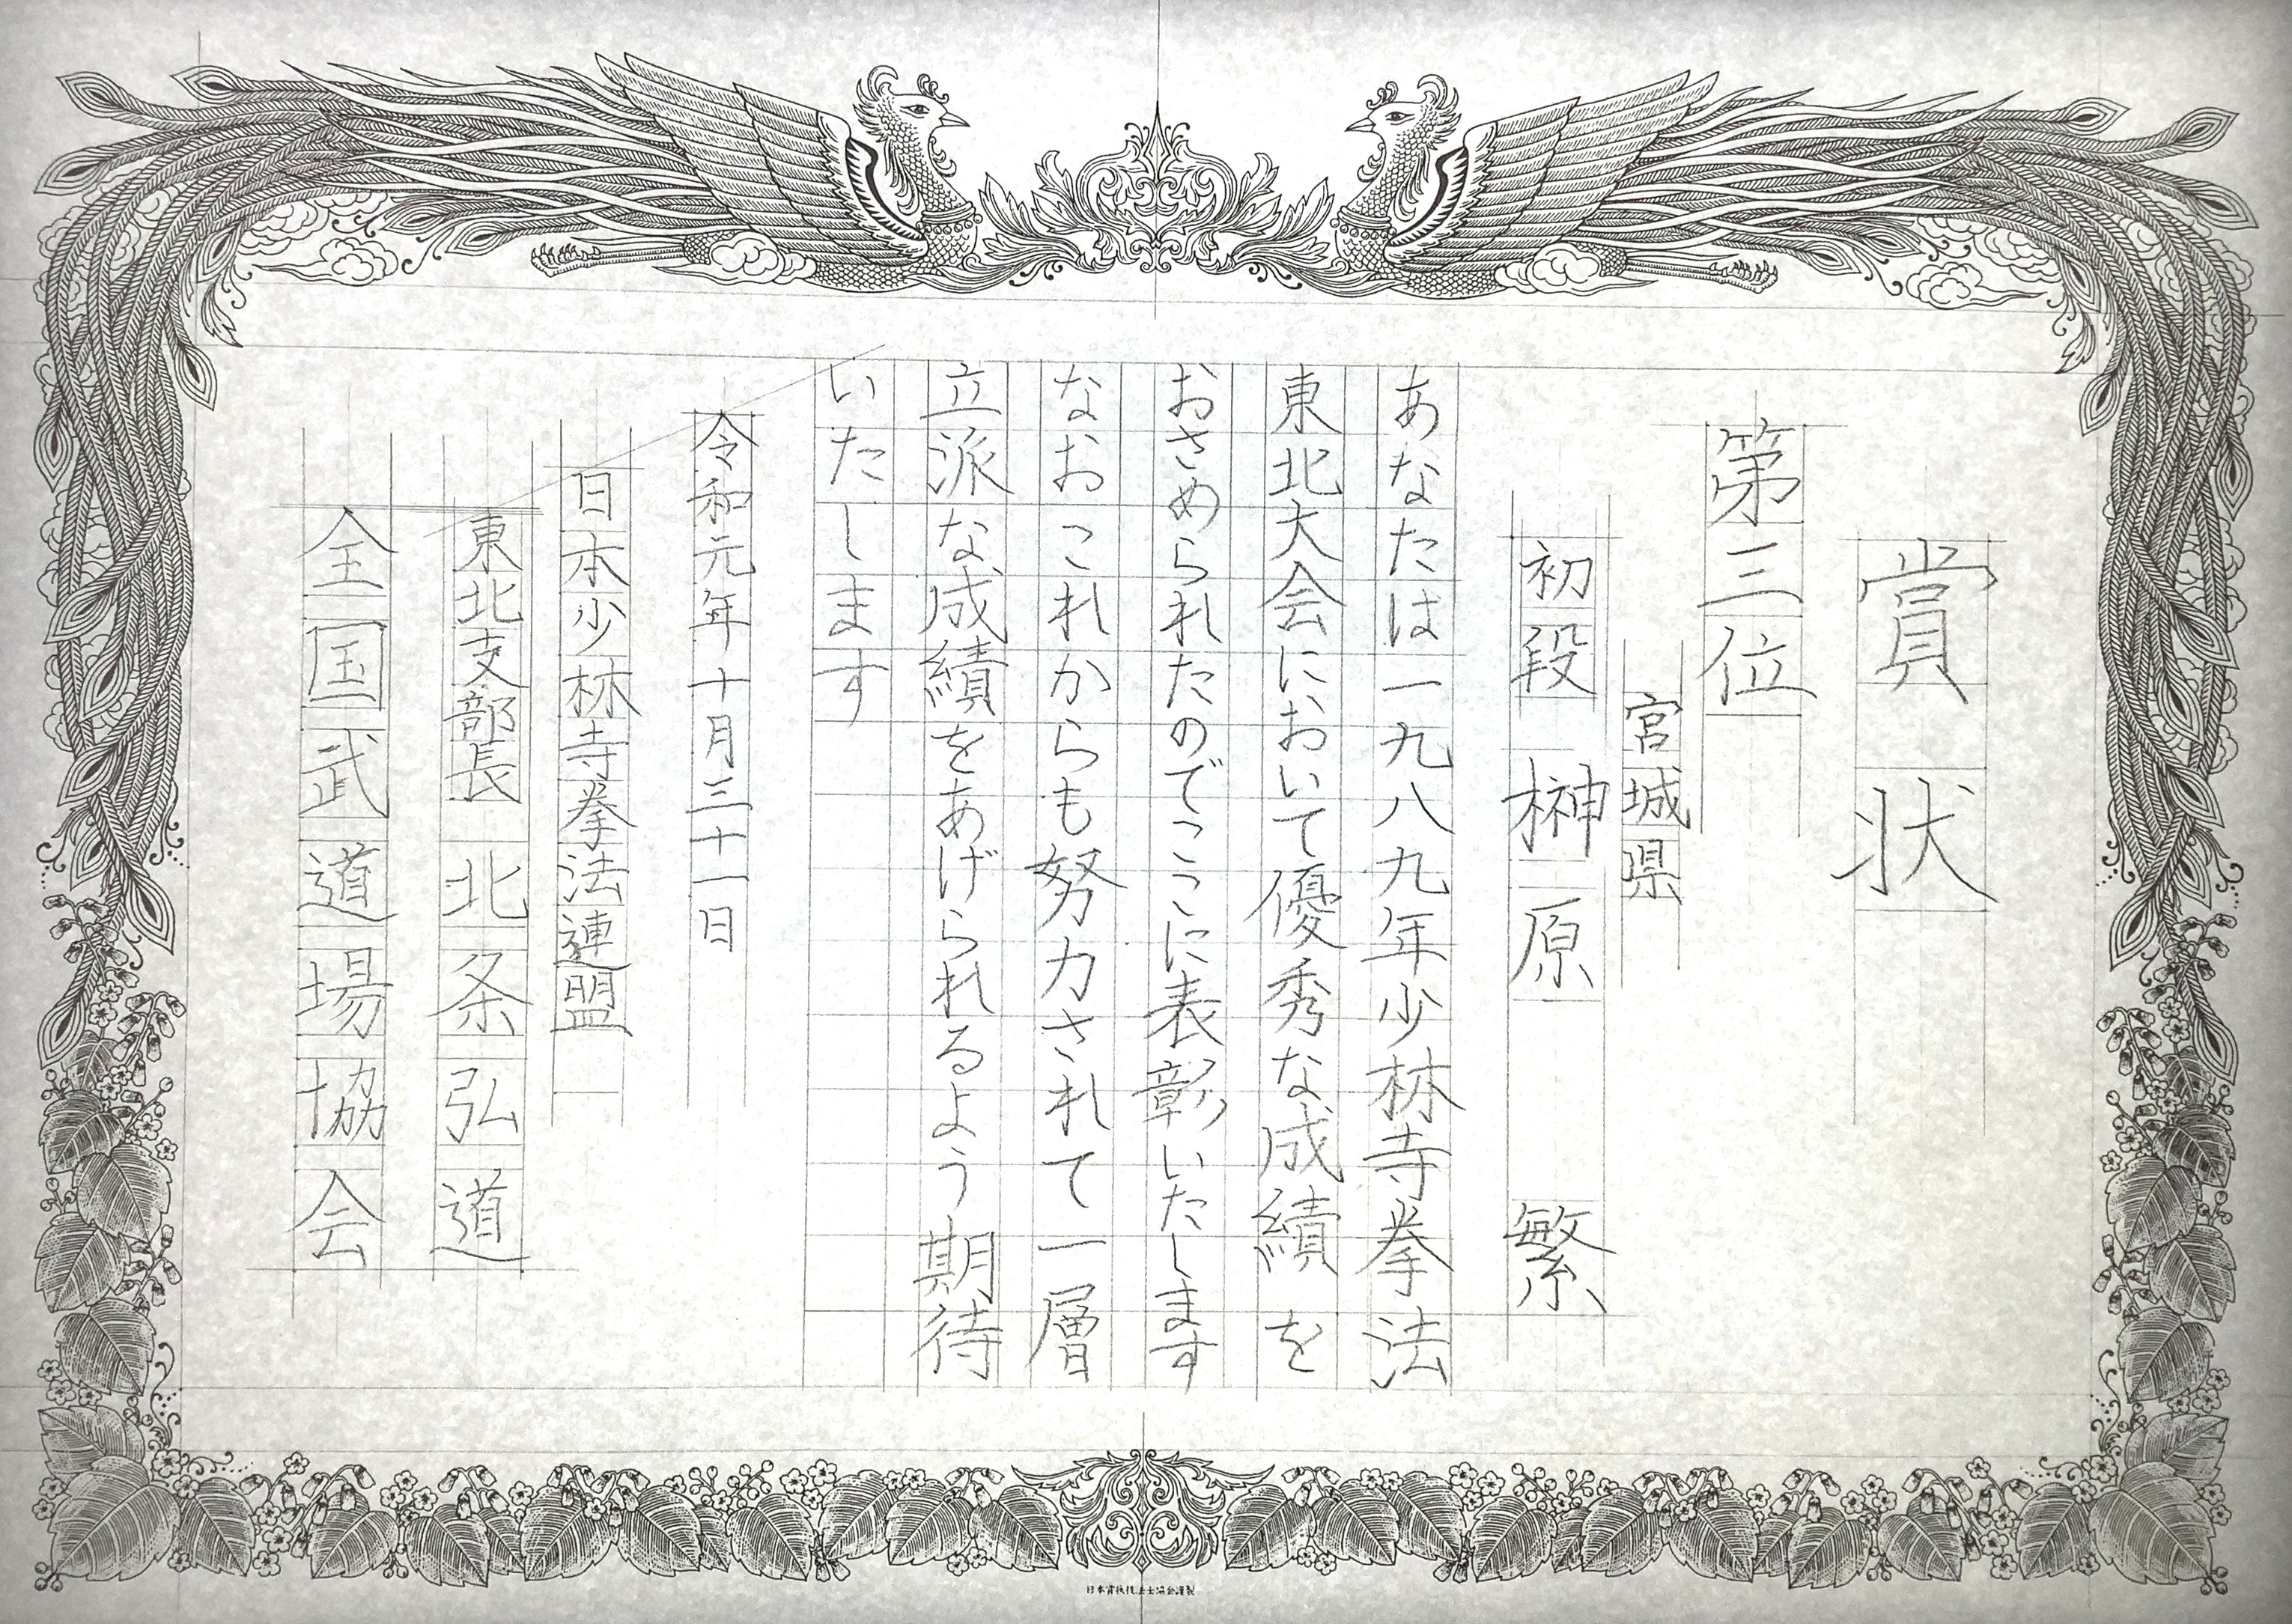 賞状
第三位
宮城県
初段 榊原 繁
あなたは一九八九年少林寺拳法
東北大会において優秀な成績を
おさめられたのでここに表彰いたします
なおこれからも努力されて一層
立派な成績をあげられるよう期待
いたします
令和元年十月三十一日
日本少林寺拳法連盟
東北支部長 北条弘道
全国武道場協会